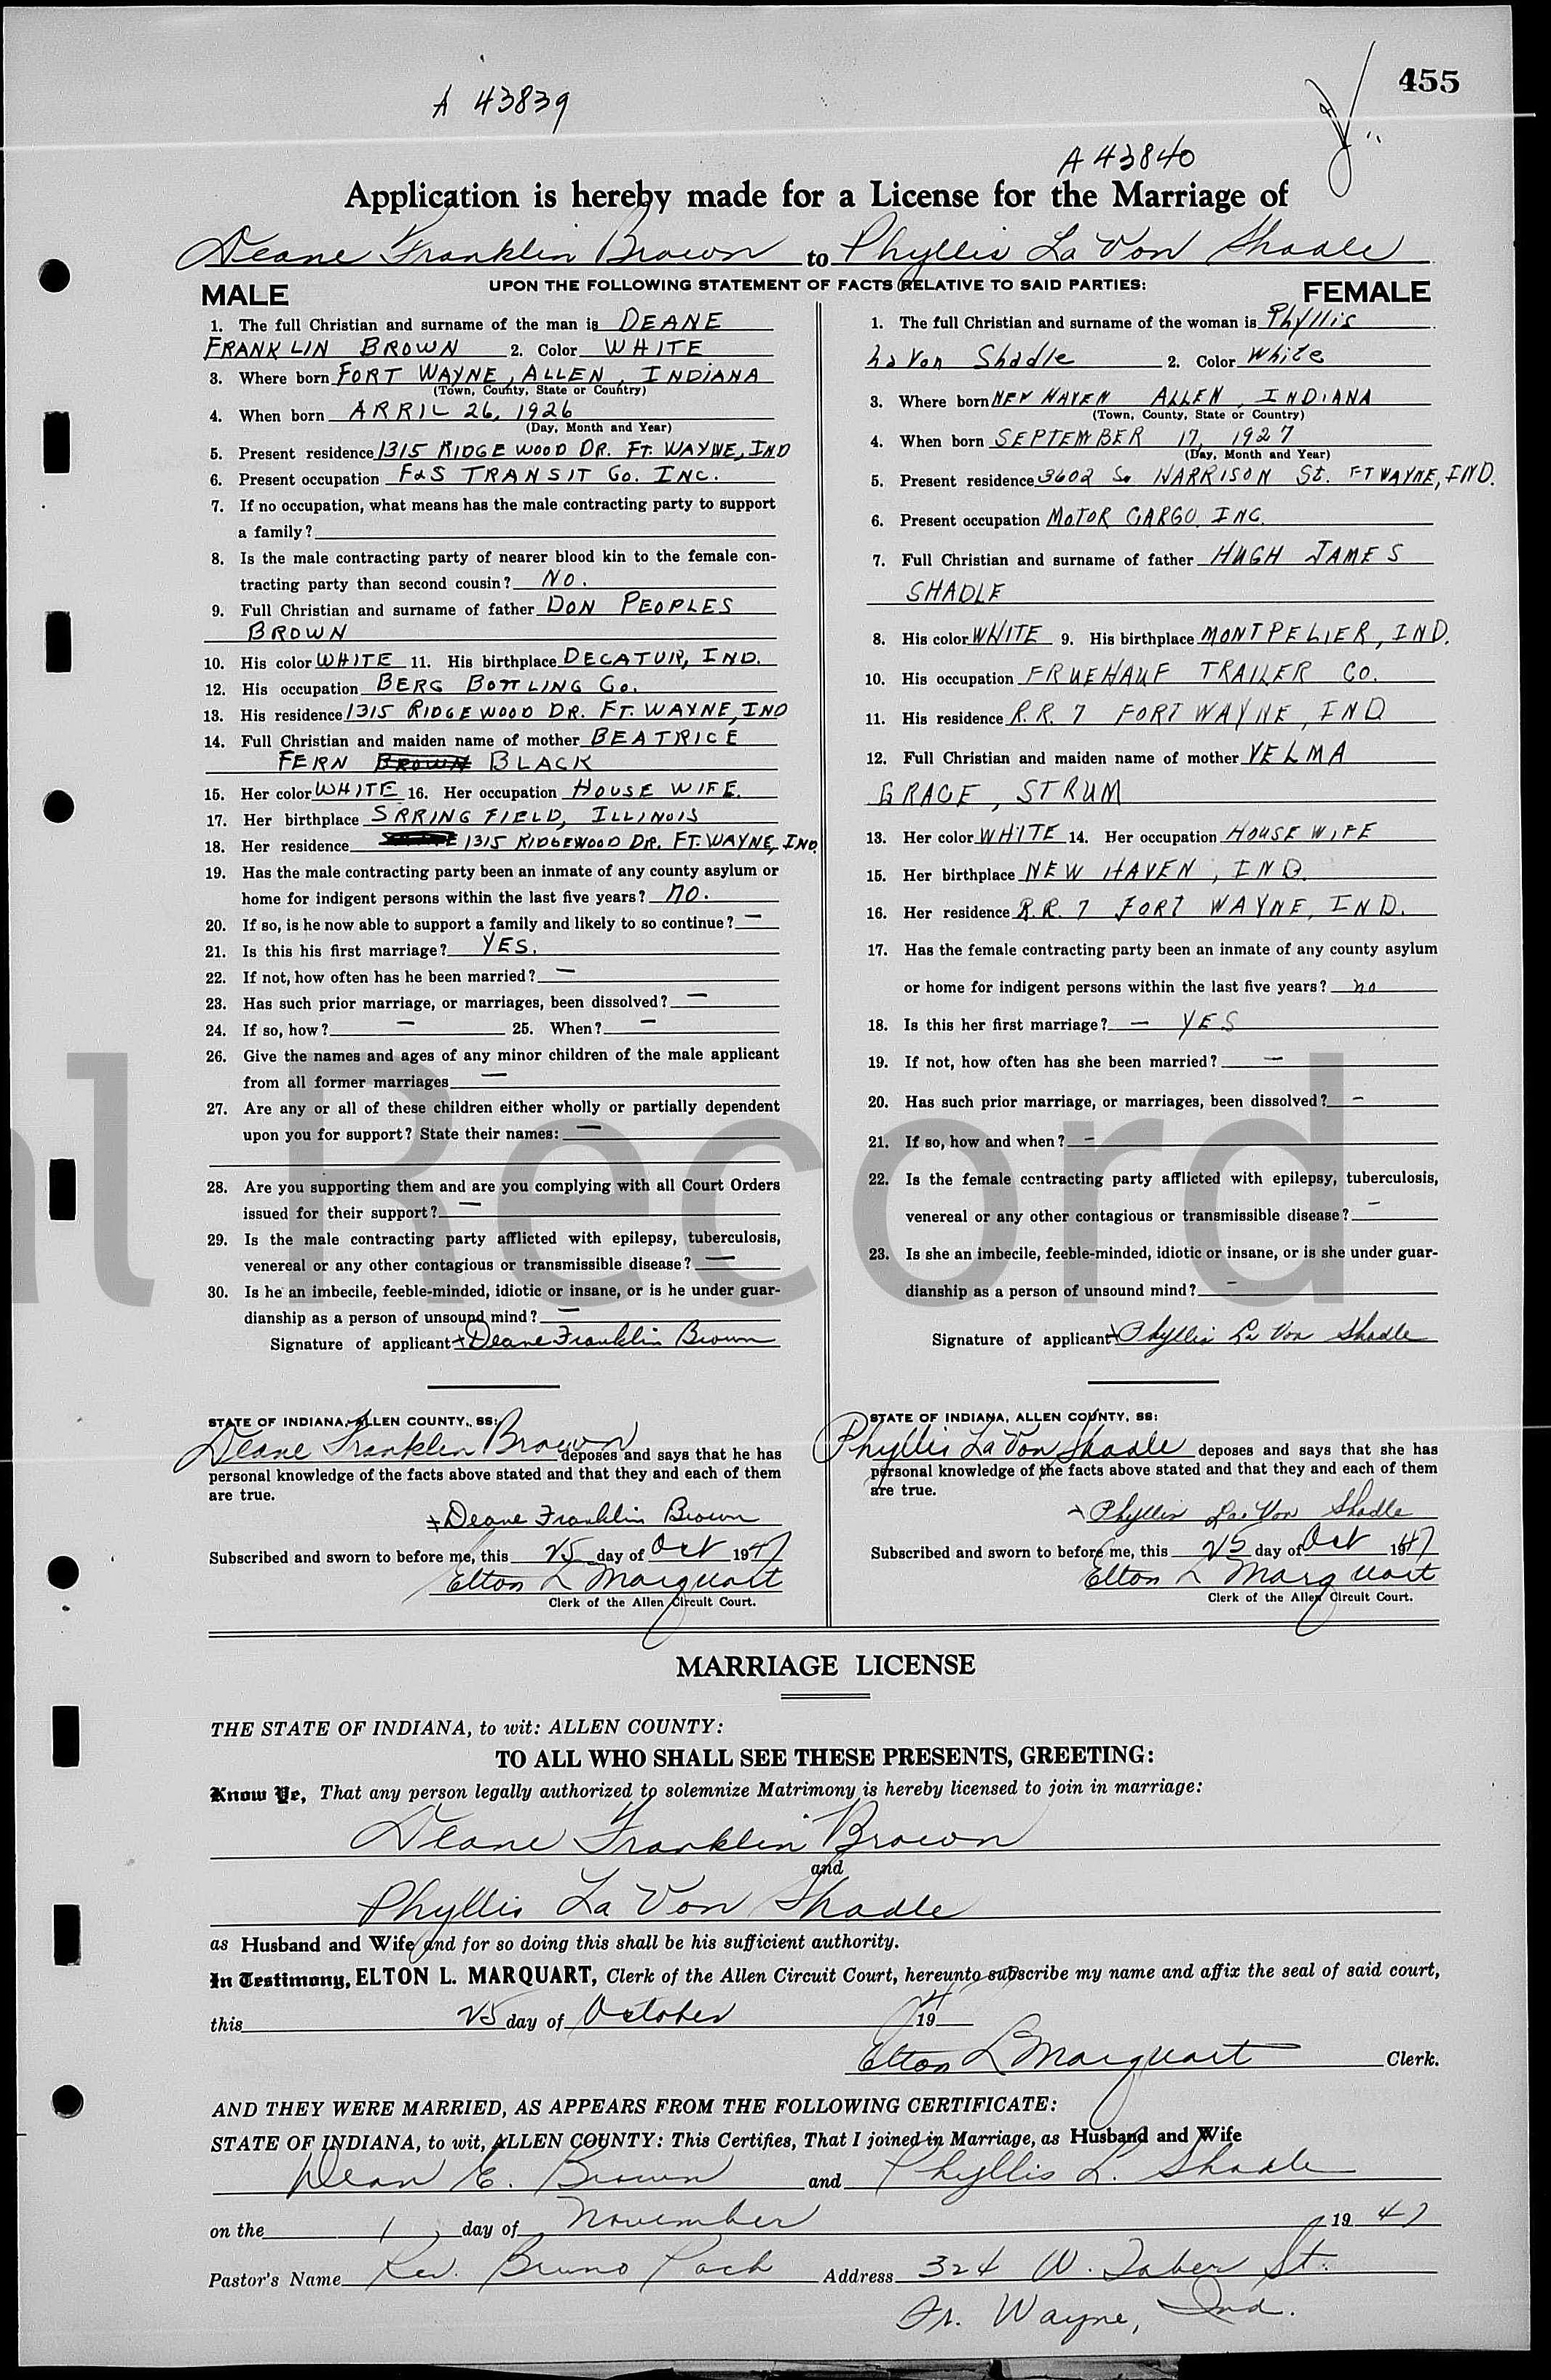 455
A 43839
A 43840
Application is hereby made for a License for the Marriage of
Deane Franklin Brown to Phyllis La Von Shadle
UPON THE FOLLOWING STATEMENT OF FACTS RELATIVE TO SAID PARTIES:
MALE
1. The full Christian and surname of the man is DEANE
FRANKLIN BROWN 2. Color WHITE
3. Where born FORT WAYNE, ALLEN, INDIANA
(Town, County, State or Country)
4. When born APRIL 26, 1926
(Day, Month and Year)
5. Present residence 1315 RIDGE WOOD DR. FT. WAYNE, IND
6. Present occupation F&S TRANSIT CO. INC.
7. If no occupation, what means has the male contracting party to support
a family?
8. Is the male contracting party of nearer blood kin to the female con-
tracting party than second cousin? NO.
9. Full Christian and surname of father DON PEOPLES
BROWN
10. His color WHITE 11. His birthplace DECATUR, IND.
12. His occupation BERG BOTTLING CO.
13. His residence 1315 RIDGE WOOD DR. FT. WAYNE, IND
14. Full Christian and maiden name of mother BEATRICE
FERN BROWN BLACK
15. Her color WHITE 16. Her occupation HOUSE WIFE.
17. Her birthplace SPRING FIELD, ILLINOIS
18. Her residence 1315 RIDGEWOOD DR. FT. WAYNE, IND.
19. Has the male contracting party been an inmate of any county asylum or
home for indigent persons within the last five years? NO.
20. If so, is he now able to support a family and likely to so continue? —
21. Is this his first marriage? YES.
22. If not, how often has he been married? —
23. Has such prior marriage, or marriages, been dissolved? —
24. If so, how? — 25. When? —
26. Give the names and ages of any minor children of the male applicant
from all former marriages —
27. Are any or all of these children either wholly or partially dependent
upon you for support? State their names: —
28. Are you supporting them and are you complying with all Court Orders
issued for their support? —
29. Is the male contracting party afflicted with epilepsy, tuberculosis,
venereal or any other contagious or transmissible disease? —
30. Is he an imbecile, feeble-minded, idiotic or insane, or is he under guar-
dianship as a person of unsound mind? —
Signature of applicant x Deane Franklin Brown
STATE OF INDIANA, ALLEN COUNTY, SS:
Deane Franklin Brown deposes and says that he has
personal knowledge of the facts above stated and that they and each of them
are true.
x Deane Franklin Brown
Subscribed and sworn to before me, this 25 day of Oct 1947
Elton L Marquart
Clerk of the Allen Circuit Court.
FEMALE
1. The full Christian and surname of the woman is Phyllis
LaVon Shadle 2. Color White
3. Where born NEW HAVEN ALLEN, INDIANA
(Town, County, State or Country)
4. When born SEPTEMBER 17, 1927
(Day, Month and Year)
5. Present residence 3602 So. HARRISON St. FT WAYNE, IND.
6. Present occupation MOTOR CARGO INC.
7. Full Christian and surname of father HUGH JAMES
SHADLE
8. His color WHITE 9. His birthplace MONTPELIER, IND.
10. His occupation FRUEHAUF TRAILER CO.
11. His residence R.R. 7 FORT WAYNE, IND
12. Full Christian and maiden name of mother VELMA
GRACE, STRUM
13. Her color WHITE 14. Her occupation HOUSE WIFE
15. Her birthplace NEW HAVEN, IND.
16. Her residence R.R. 7 FORT WAYNE, IND.
17. Has the female contracting party been an inmate of any county asylum
or home for indigent persons within the last five years? no
18. Is this her first marriage? — YES
19. If not, how often has she been married? —
20. Has such prior marriage, or marriages, been dissolved? —
21. If so, how and when? —
22. Is the female contracting party afflicted with epilepsy, tuberculosis,
venereal or any other contagious or transmissible disease? —
23. Is she an imbecile, feeble-minded, idiotic or insane, or is she under guar-
dianship as a person of unsound mind? —
Signature of applicant x Phyllis La Von Shadle
STATE OF INDIANA, ALLEN COUNTY, SS:
Phyllis La Von Shadle deposes and says that she has
personal knowledge of the facts above stated and that they and each of them
are true.
x Phyllis La Von Shadle
Subscribed and sworn to before me, this 25 day of Oct 1947
Elton L Marquart
Clerk of the Allen Circuit Court.
l Record
MARRIAGE LICENSE
THE STATE OF INDIANA, to wit: ALLEN COUNTY:
TO ALL WHO SHALL SEE THESE PRESENTS, GREETING:
Know Ye, That any person legally authorized to solemnize Matrimony is hereby licensed to join in marriage:
Deane Franklin Brown
and
Phyllis La Von Shadle
as Husband and Wife and for so doing this shall be his sufficient authority.
In Testimony, ELTON L. MARQUART, Clerk of the Allen Circuit Court, hereunto subscribe my name and affix the seal of said court,
this 25 day of October 19
Elton L Marquart Clerk.
AND THEY WERE MARRIED, AS APPEARS FROM THE FOLLOWING CERTIFICATE:
STATE OF INDIANA, to wit, ALLEN COUNTY: This Certifies, That I joined in Marriage, as Husband and Wife
Dean E. Brown and Phyllis L. Shadle
on the 1 day of November 19 47
Pastor's Name Rev. Bruno Address 324 W. Taber St.
Ft. Wayne, Ind.